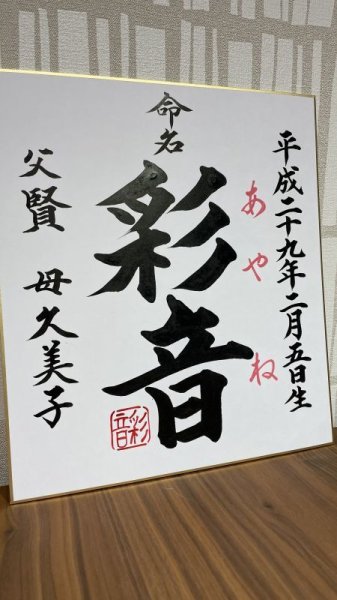 平成二十九年二月五日生
あやね
命名
彩音
彩音
父賢 母久美子